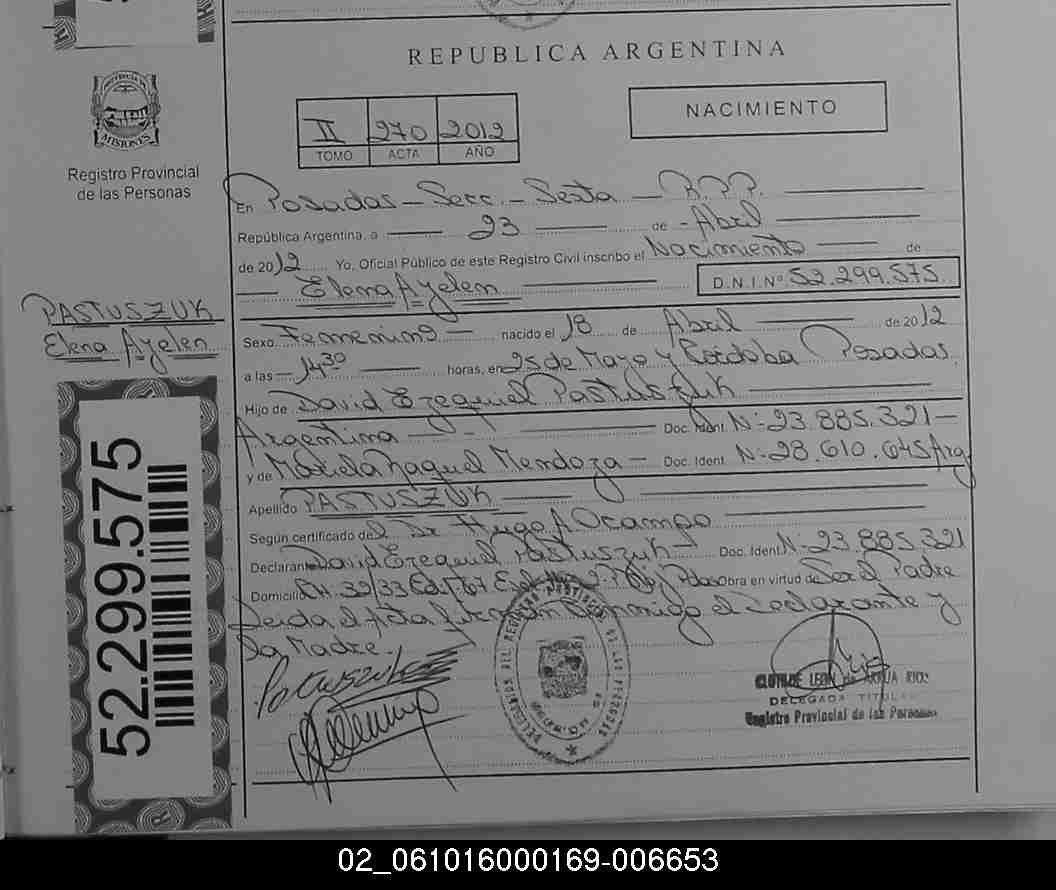 REPUBLICA ARGENTINA
II 270 2012
TOMO ACTA AÑO
NACIMIENTO
PROVINCIA DE
MISIONES
Registro Provincial
de las Personas
En Posadas - Secc. - Sexta - R.P.P.
República Argentina, a 23 de - Abril
de 2012 Yo, Oficial Público de este Registro Civil inscribo el Nacimiento de
Elena Ayelen D.N.I.Nº 52.299.575
PASTUSZUK
Elena Ayelen
Sexo Femenino - nacido el 18 de Abril de 2012
a las - 14 30 horas, en 25 de Mayo y Córdoba Posadas
Hijo de David Ezequiel Pastuszuk
Argentina Doc. Ident. Nº 23.885.321 -
y de Mariela Raquel Mendoza - Doc. Ident. Nº 28.610.645 Arg
Apellido PASTUSZUK
Según certificado del Dr Hugo A. Ocampo
Declarante David Ezequiel Pastuszuk - Doc. Ident. Nº 23.885.321
Domicilio CH. 32/33 Edif. Pdas obra en virtud de Ser el Padre
Leida el Acta firman conmigo el Declarante y
la Madre.
Pastuszuk
CLOTILDE LEON de ARRUA RIOS
DELEGADA TITULAR
Registro Provincial de las Personas
52.299.575
02_061016000169-006653